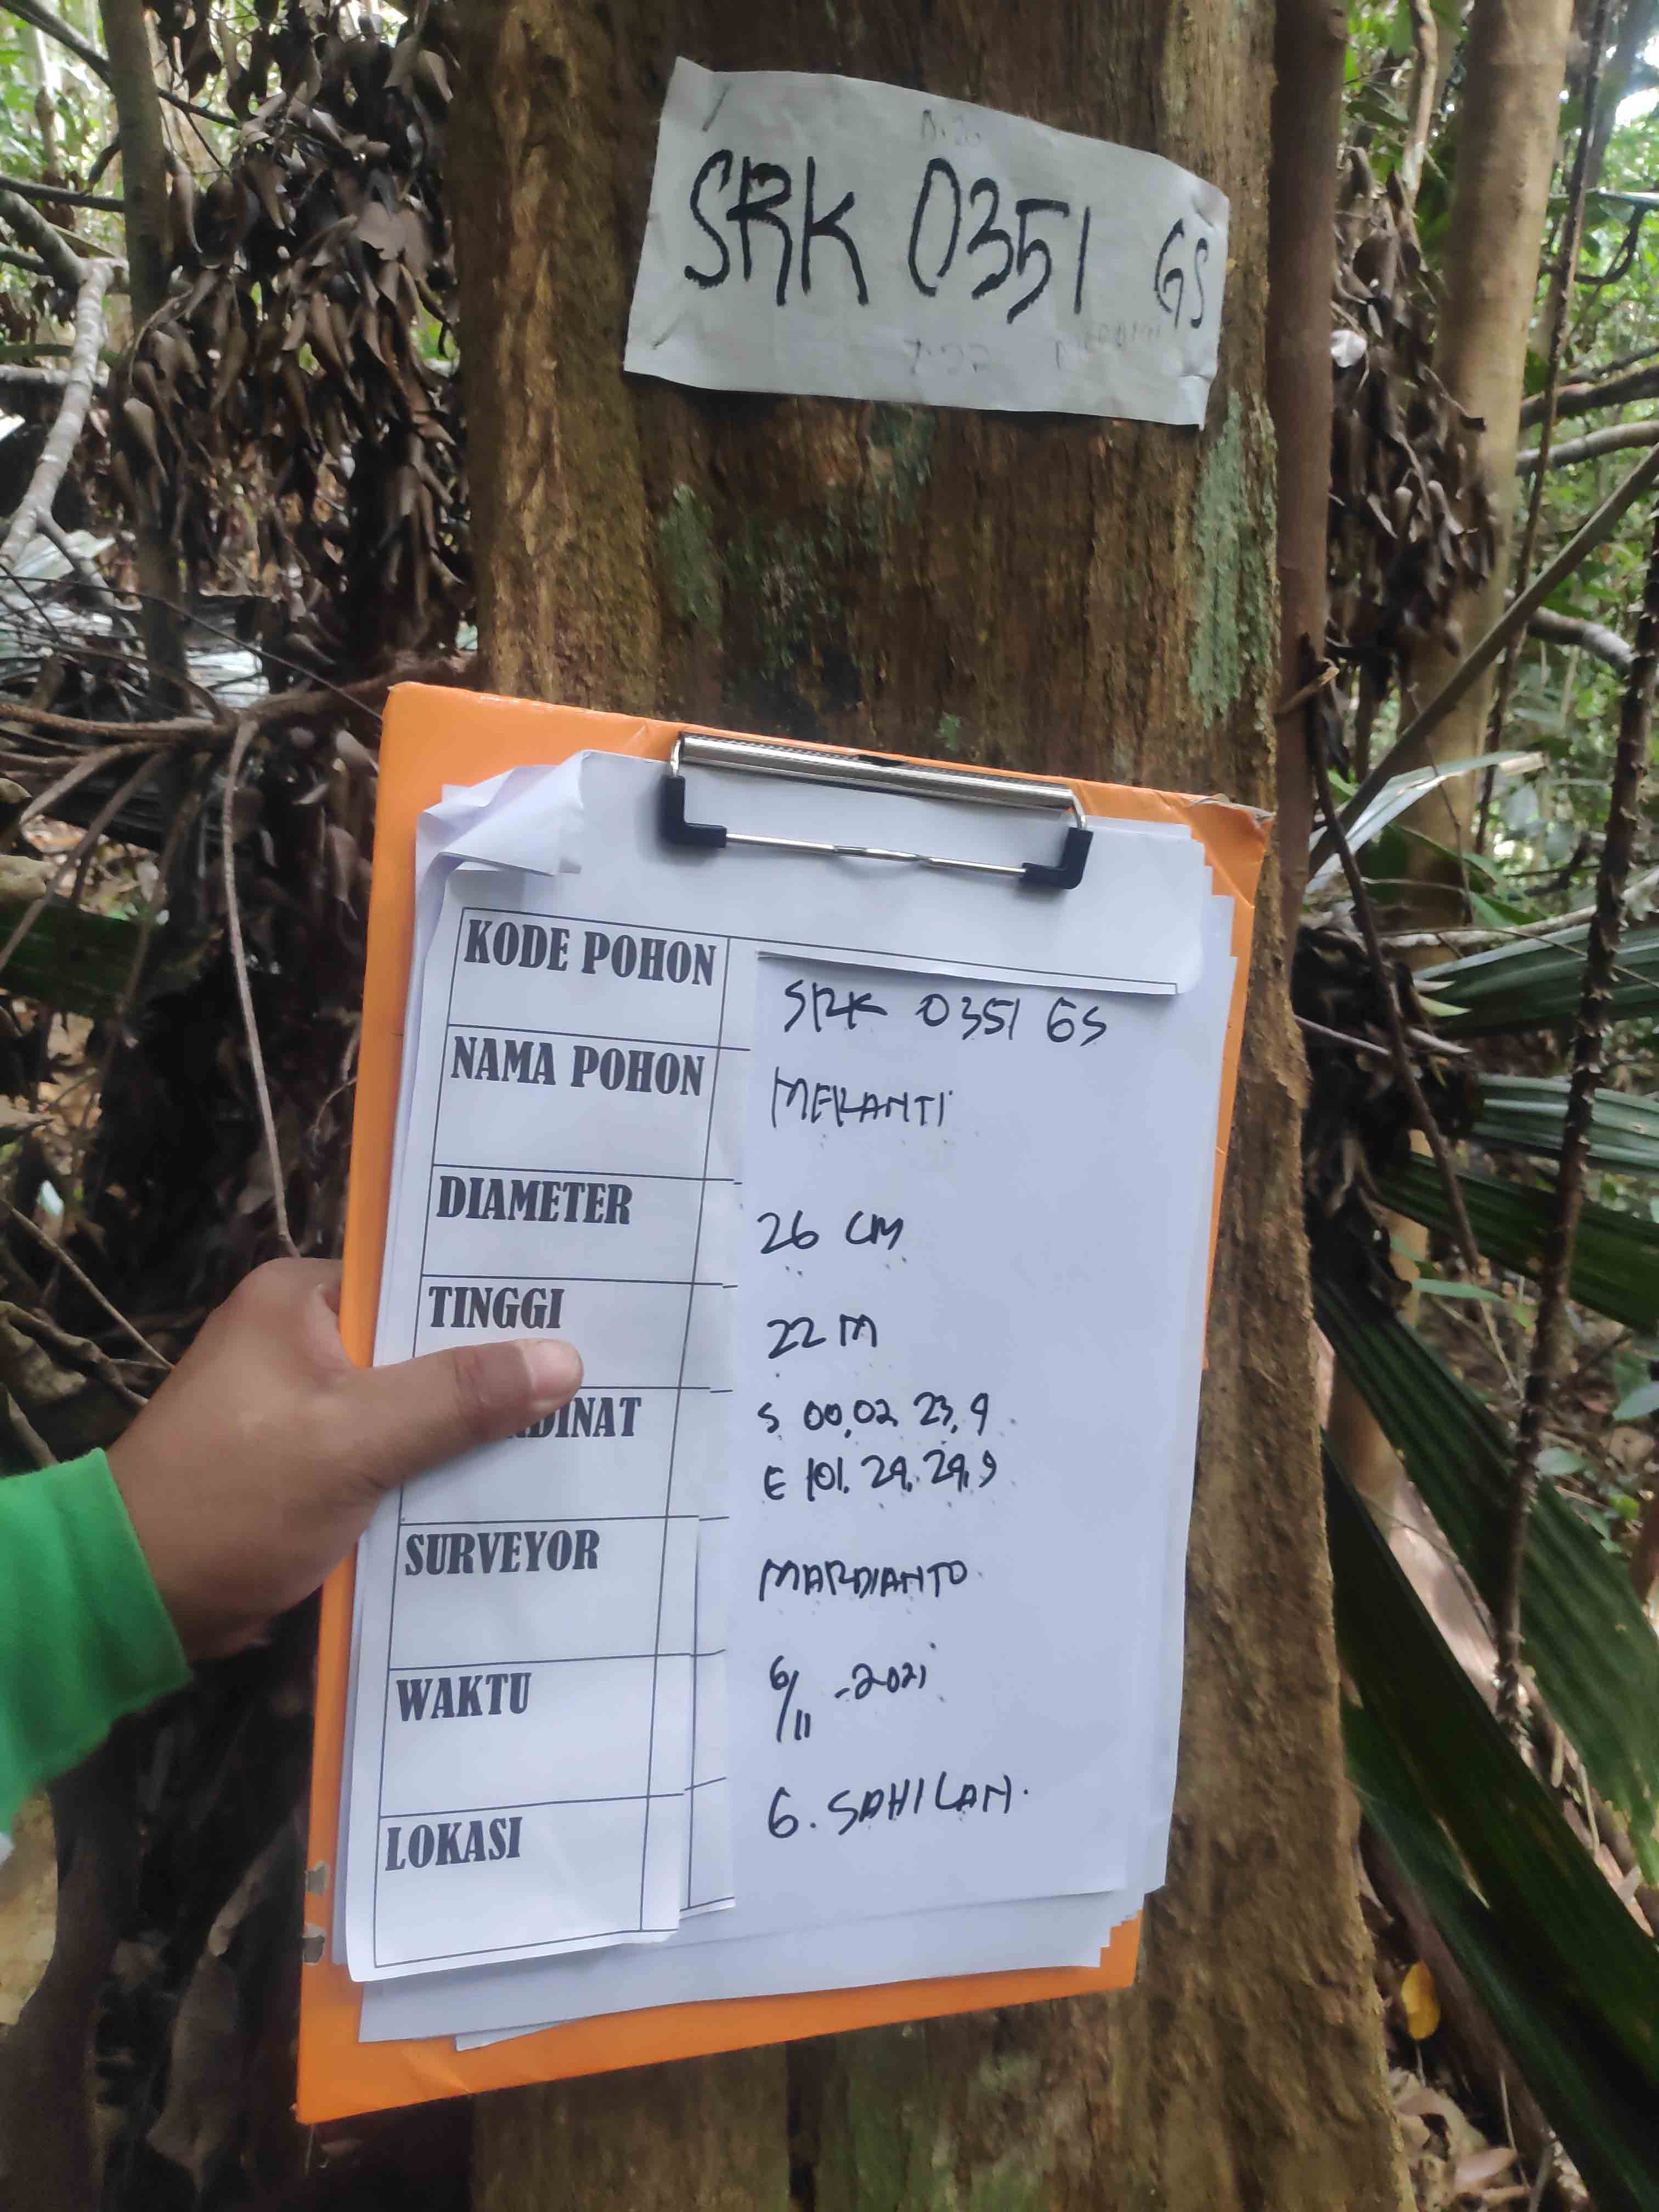 SRK 0351 GS
KODE POHON
SRK 0351 GS
NAMA POHON
MERANTI
DIAMETER
26 CM
TINGGI
22 M
DINAT
S 00,02 23,9
E 101. 29. 29,9
SURVEYOR
MARDIANTO
WAKTU
6/11 -2021
LOKASI
G. SAHILAN.